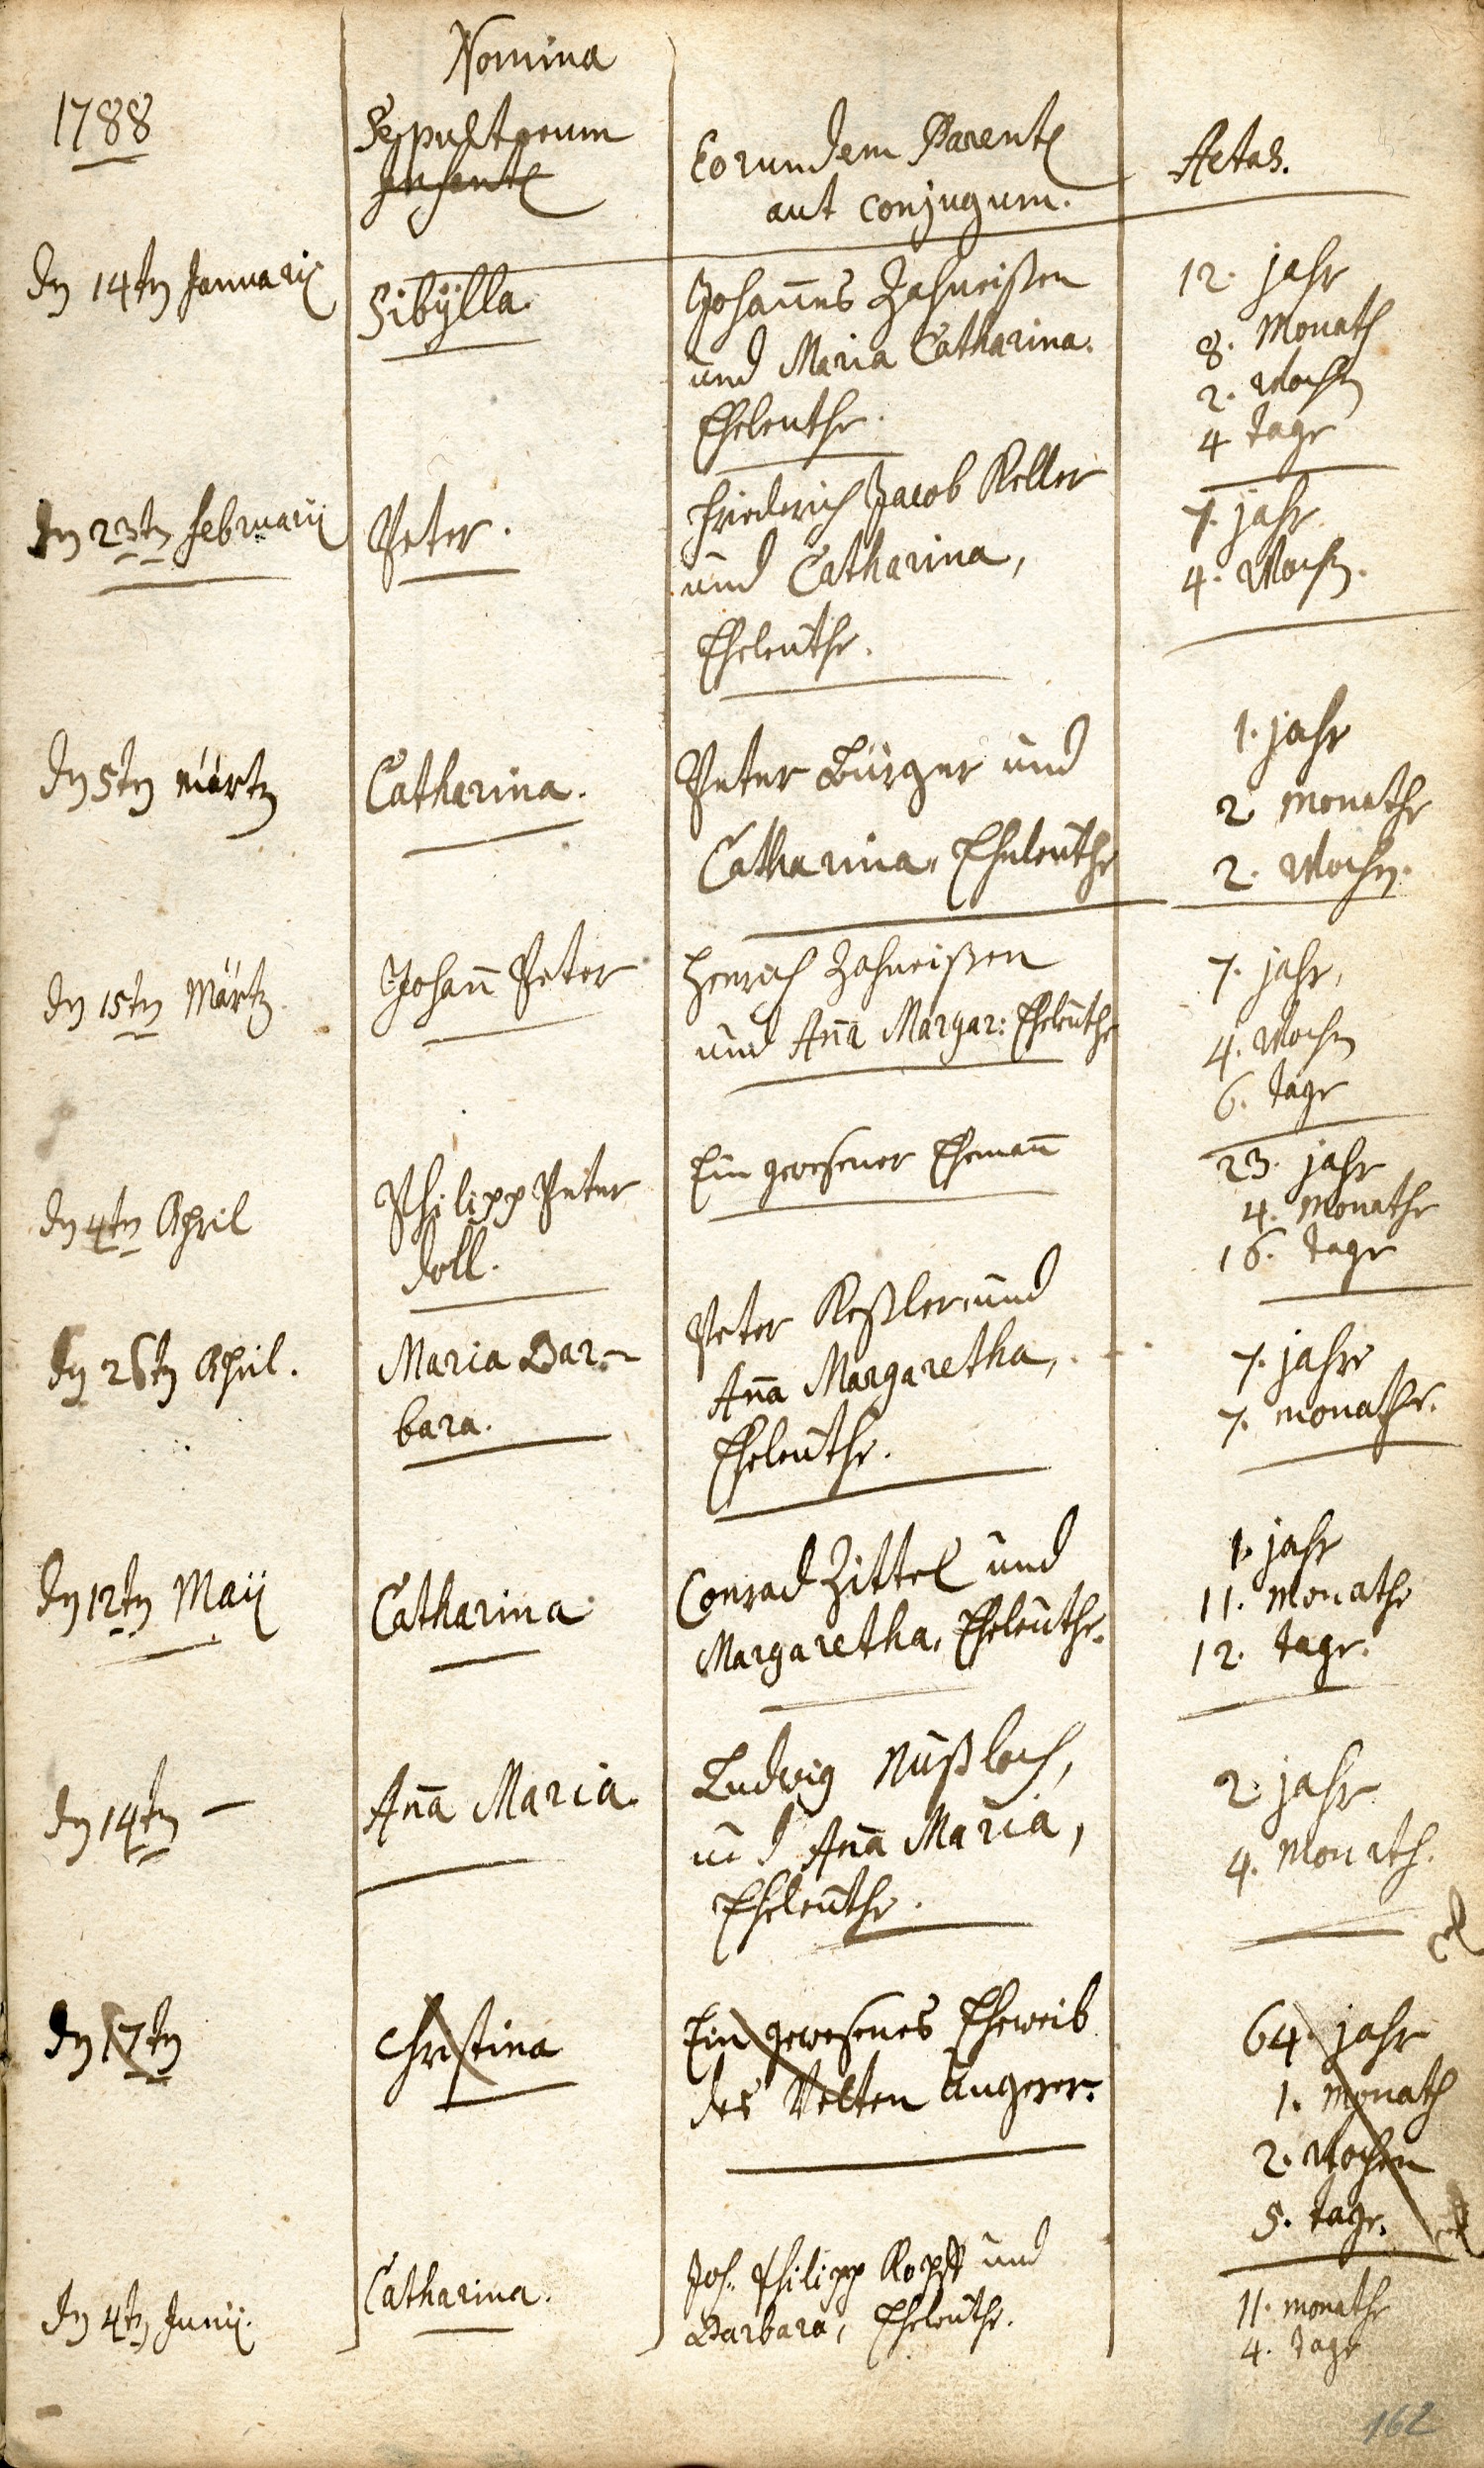 Nomina
1788
Sepultorum
Infantl
Eorundem Parentl
aut conjugum.
Aetas.
dn 14tn Januarii
Sibÿlla.
Johañes Zahneißen
und Maria Catharina.
Eheleuthe.
12. jahr
8. Monath
2. Wochn
4 tage
dn 23tn februarii
Peter.
friederich Jacob Keller
und Catharina,
Eheleuthe.
7. jahr
4. Wochn.
dn 5tn märtz
Catharina.
Peter Bürger und
Catharina, Eheleuthe
1. jahr
2 monathe
2. Wochn.
dn 15tn Märtz.
Johañ Peter
Henrich Zahneißen
und Añā Margar: Eheleuthe
7. jahr,
4. Wochn
6. tage
dn 4tn April
Philipp Peter
doll.
Ein gewesener Ehemañ
23. jahr
4. Monathe
16. tage
dn 26tn April.
Maria Bar-
bara.
Peter Keßler und
Aña Margaretha,
Eheleuthe.
7. jahre
7. monathe.
dn 12tn Maii
Catharina
Conrad Zittel und
Margaretha, Eheleuthe.
1. jahr
11. Monathe
12. tage.
dn 14tn —
Aña Maria.
Ludwig Nußloch,
und Aña Maria,
Eheleuthe.
2. jahr
4. Monath.
dn 17tn
Christina
Ein gewesenes Eheweib
des Velten Ungerer.
64. jahr
1. Monath
2. Wochen
5. tage.
dn 4tn Junii.
Catharina.
Joh. Philipp Kopff und
Barbara, Eheleuthe.
11. monathe
4. tage
162